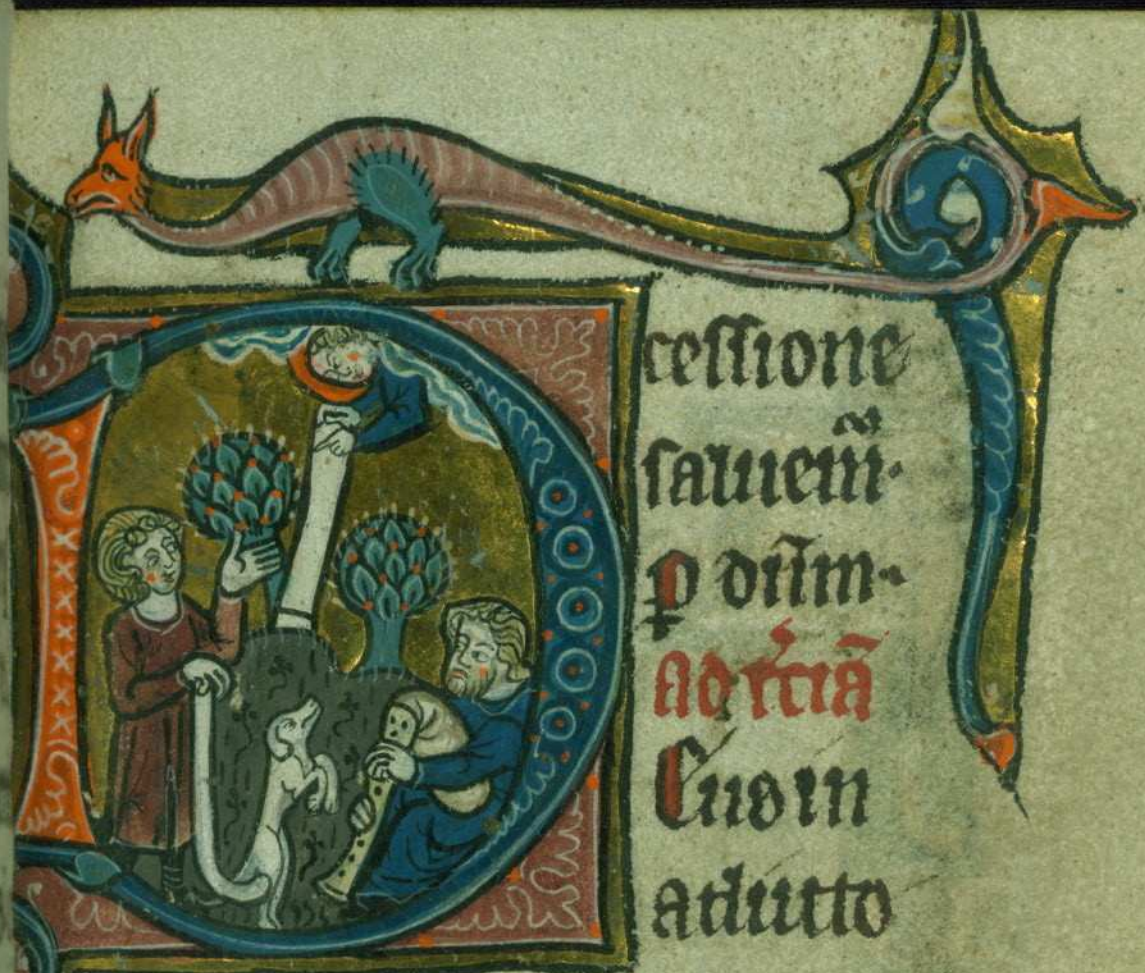 cessione
saluem̄·
ꝑ dn̄m·
Ad t̕ciā
Eus in
adiuto